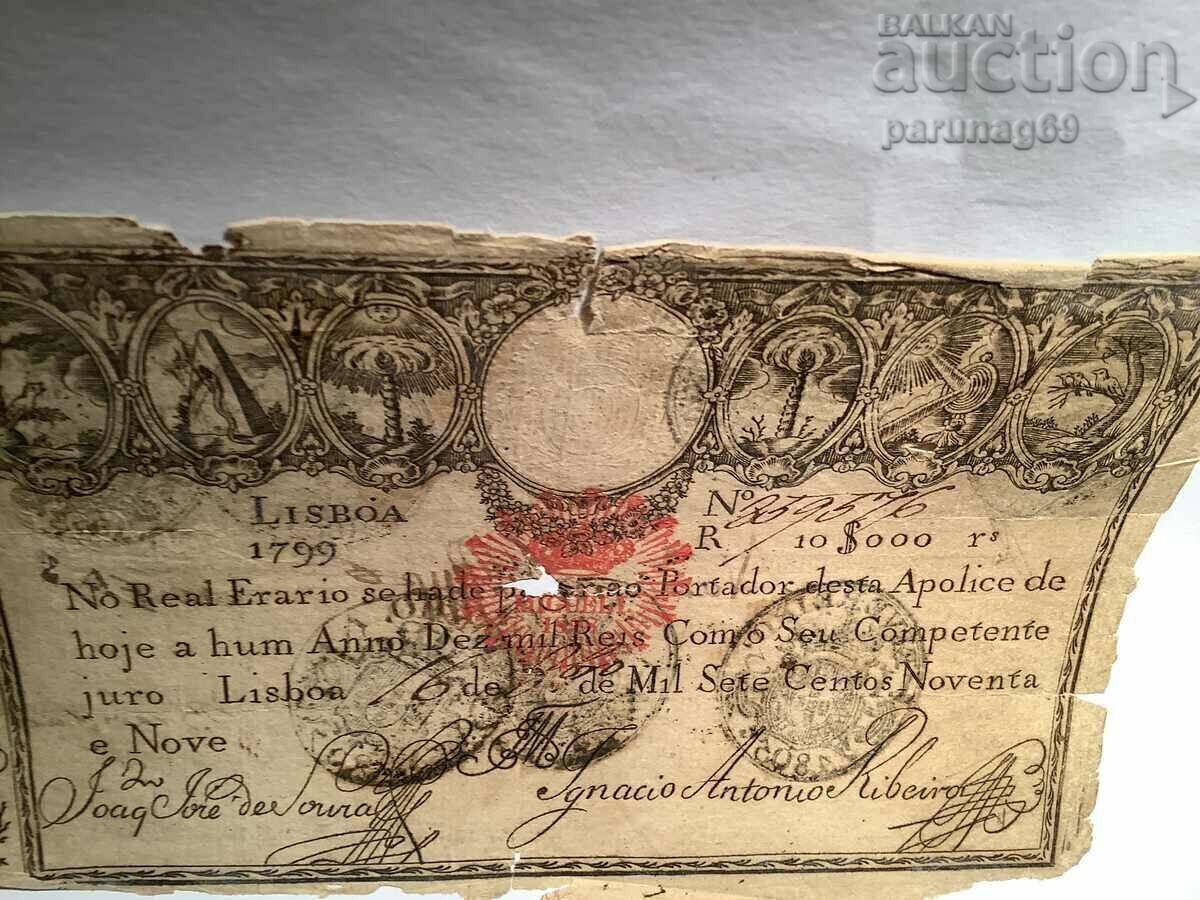 BALKAN
auction
parunag69
LISBOA
1799
Nº
R 10$000 rs
No Real Erario se hade ao Portador desta Apolice de
hoje a hum Anno Dez mil Reis Como Seu Competente
juro Lisboa 16 de de Mil Sete Centos Noventa
e Nove
Joaq José de Souza
Ignacio Antonio Ribeiro